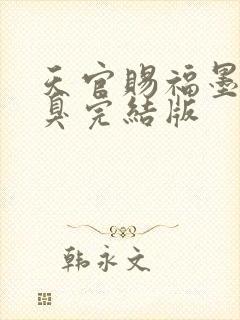 天官賜福墨
臭完結版
韩永文